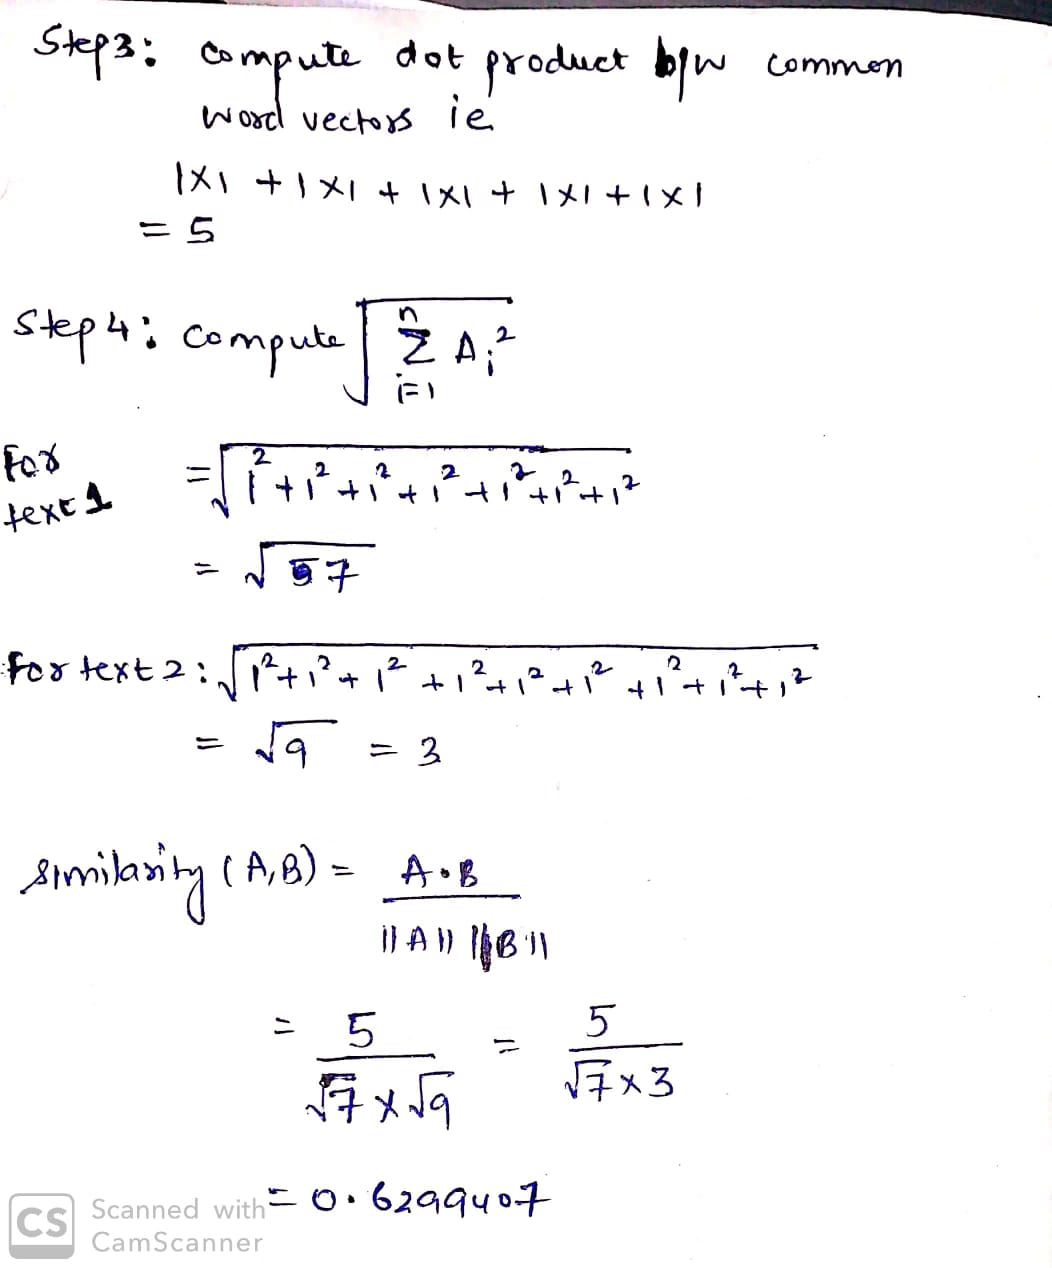 Step3: compute dot product b/w common
word vectors ie
1×1 + 1×1 + 1×1 + 1×1 + 1×1
= 5
Step 4: compute √ n Σ i=1 Ai²
For text 1
= √1²+1²+1²+1²+1²+1²+1²
= √7
For text 2: √1²+1²+1²+1²+1²+1²+1²+1²+1²
= √9 = 3
similarity (A,B) = A•B / ||A|| ||B||
= 5 / √7 × √9 = 5 / √7×3
= 0.6299407
CS Scanned with
CamScanner